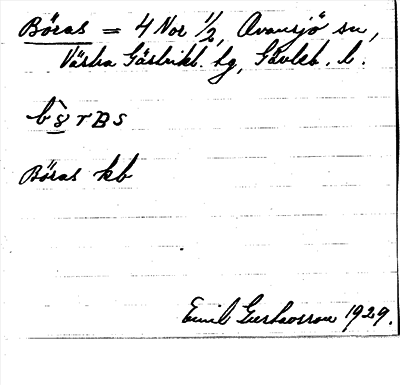 Böras = 4 Nor 1/2, Ovansjö sn,
Västra Gästrikl. hg, Gävleb. l.
Böras kb
Emil Gustavsson 1929.